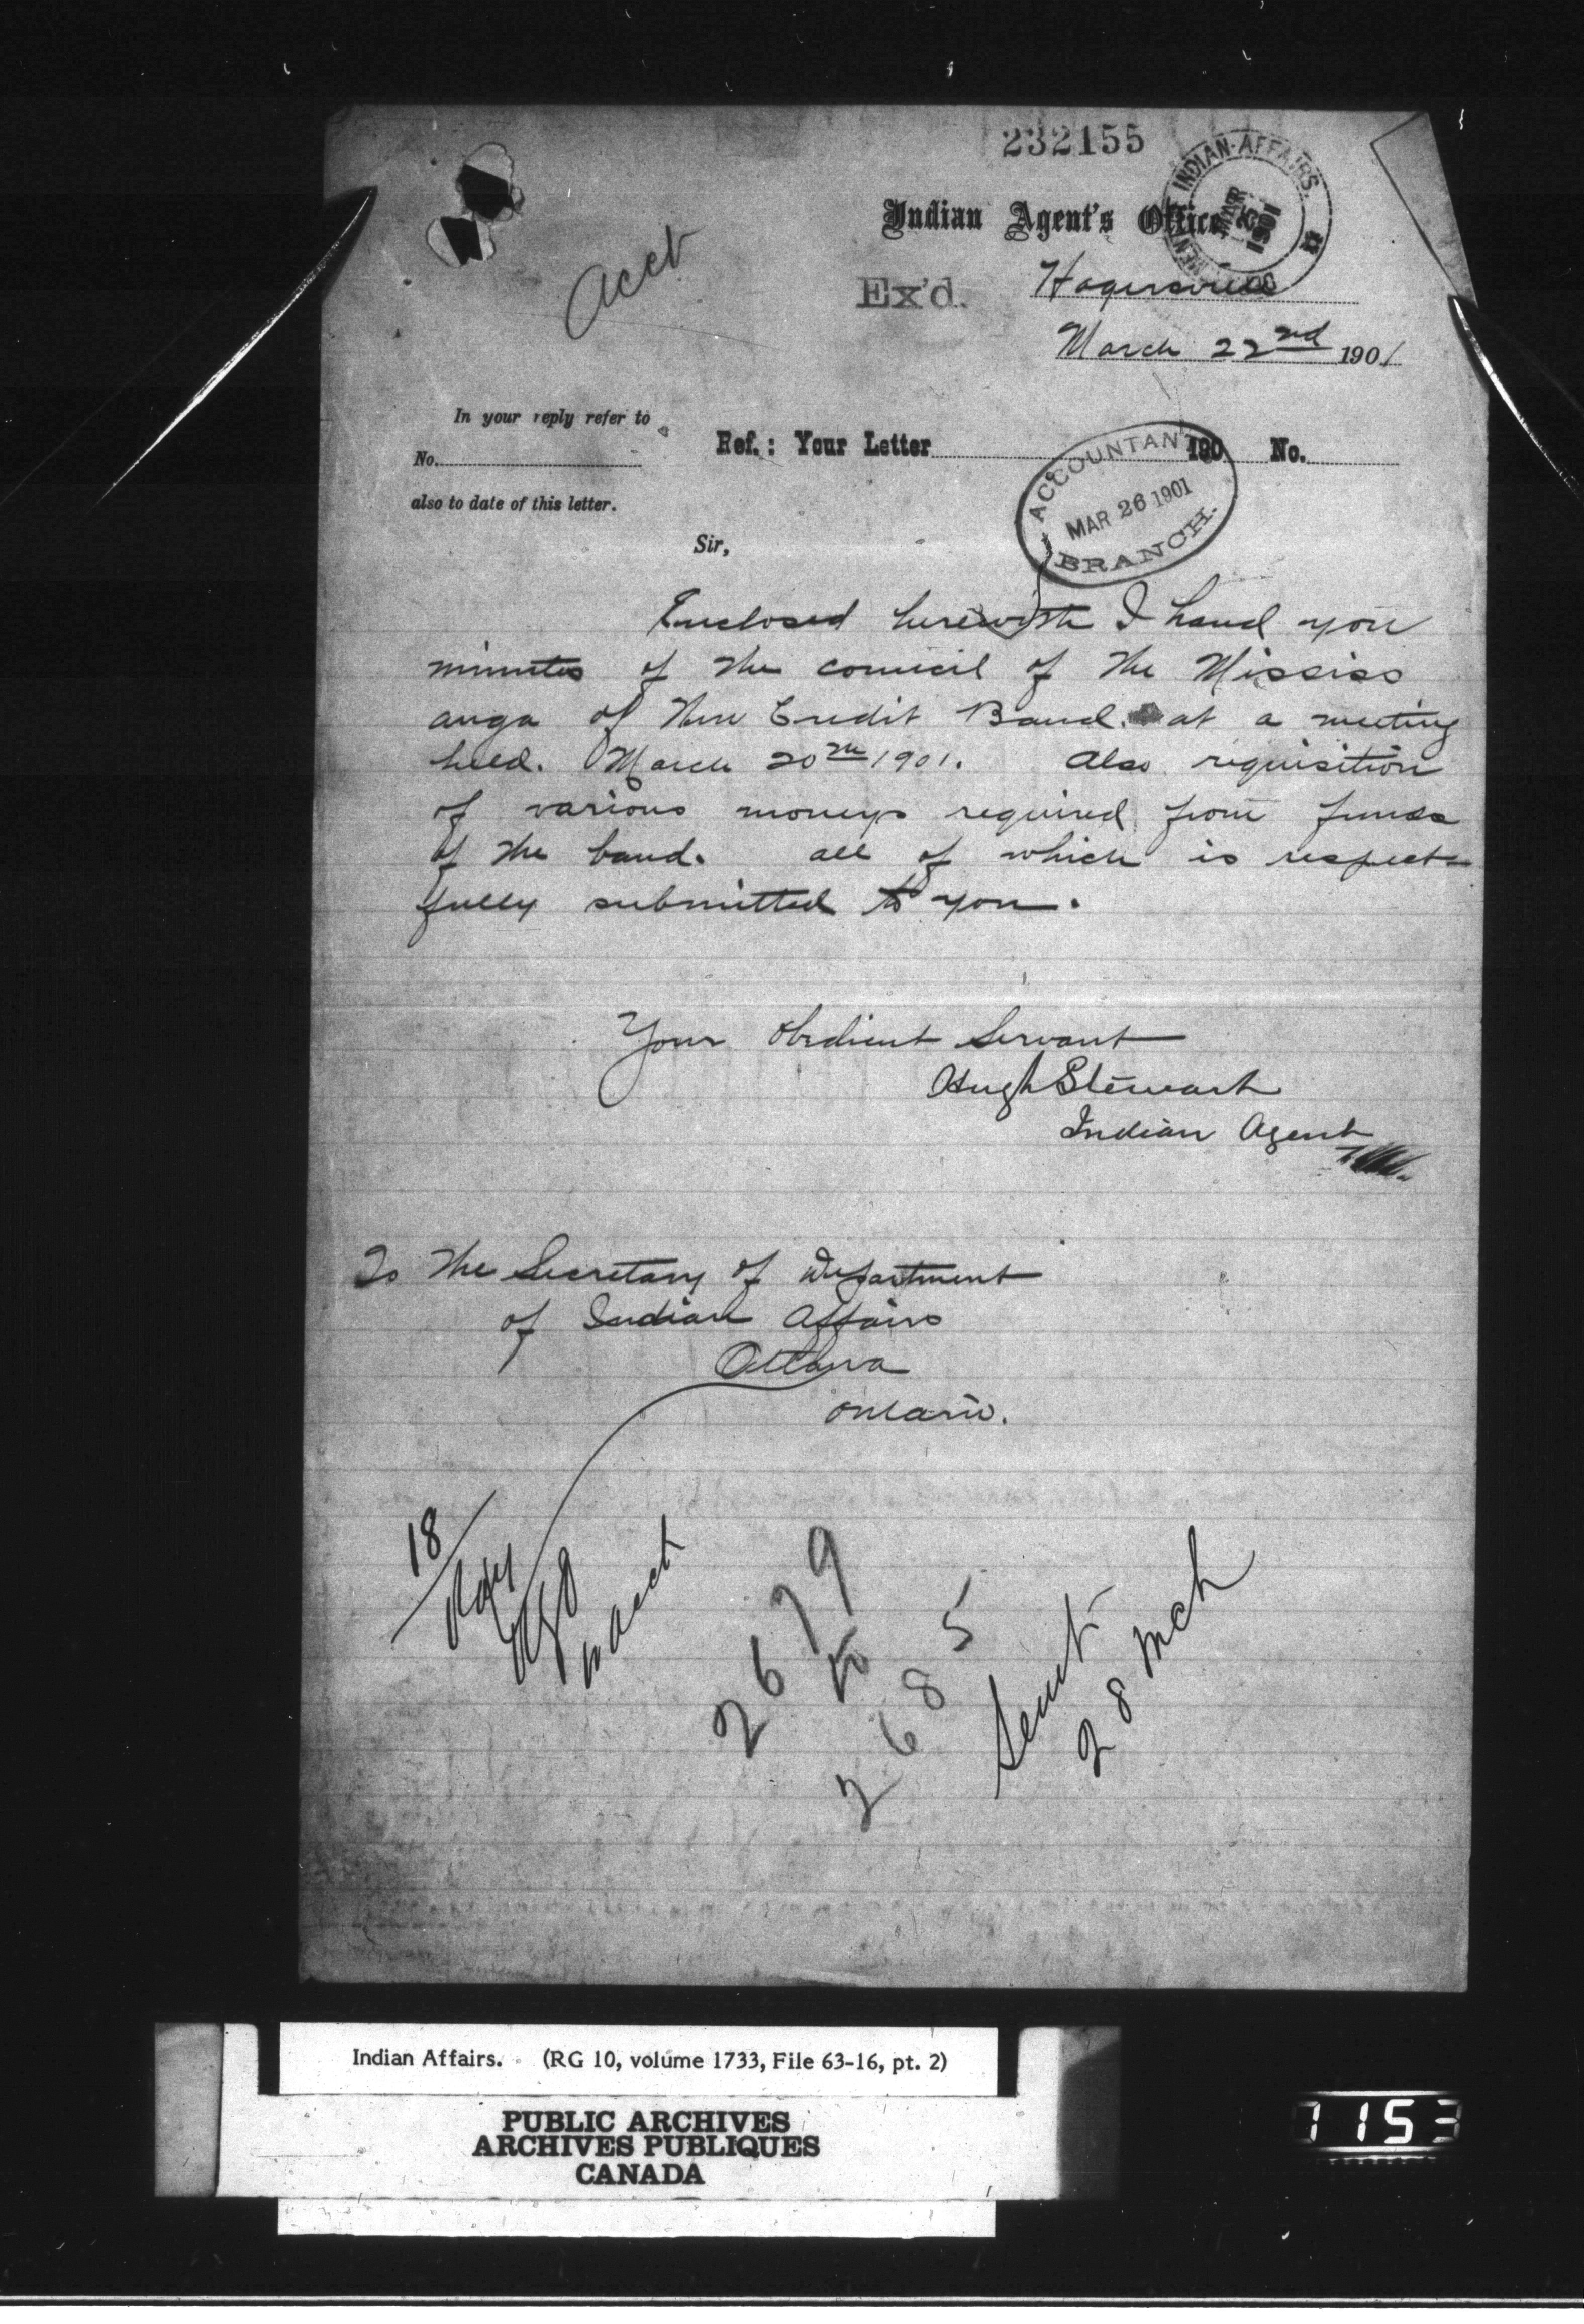 232155
DEPARTMENT INDIAN-AFFAIRS.
MAR 25 1901
Indian Agent's Office
Acct
Ex'd.
Hagersville
March 22nd 1901
In your reply refer to
No.
also to date of this letter.
Ref.: Your Letter 190 No.
ACCOUNTANT
MAR 26 1901
BRANCH.
Sir,
Enclosed herewith I hand you
minutes of the council of the Mississ
auga of the Credit Band. at a meeting
held. March 20th 1901. Also requisition
of various moneys required from funds
of the band. all of which is respect-
fully submitted to you.
Your Obedient Servant
Hugh Stewart
Indian Agent
To The Secretary of Department
of Indian Affairs
Ottawa
Ontario.
18
2679
to
2685
Sent
28 Mch
Indian Affairs. (RG 10, volume 1733, File 63-16, pt. 2)
PUBLIC ARCHIVES
ARCHIVES PUBLIQUES
CANADA
1153